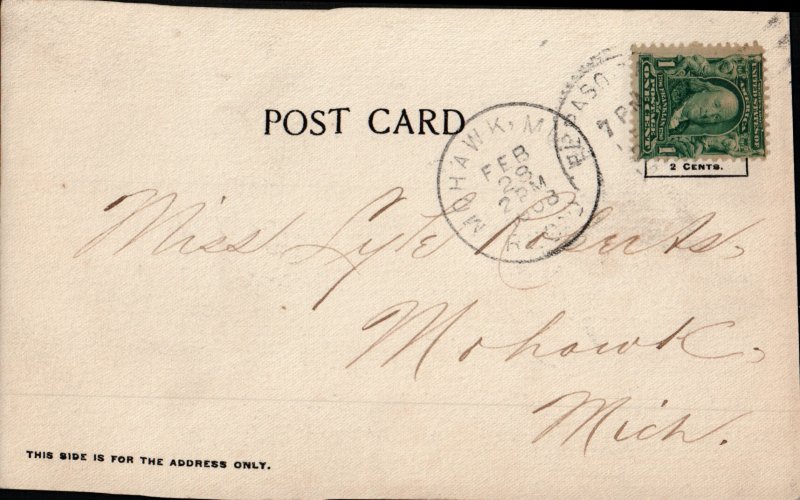 POST CARD
PASO
7 PM
MOHAWK, MICH.
FEB
28
2 PM
REC'D.
2 CENTS.
Miss Lyle Roberts,
Mohawk,
Mich.
THIS SIDE IS FOR THE ADDRESS ONLY.